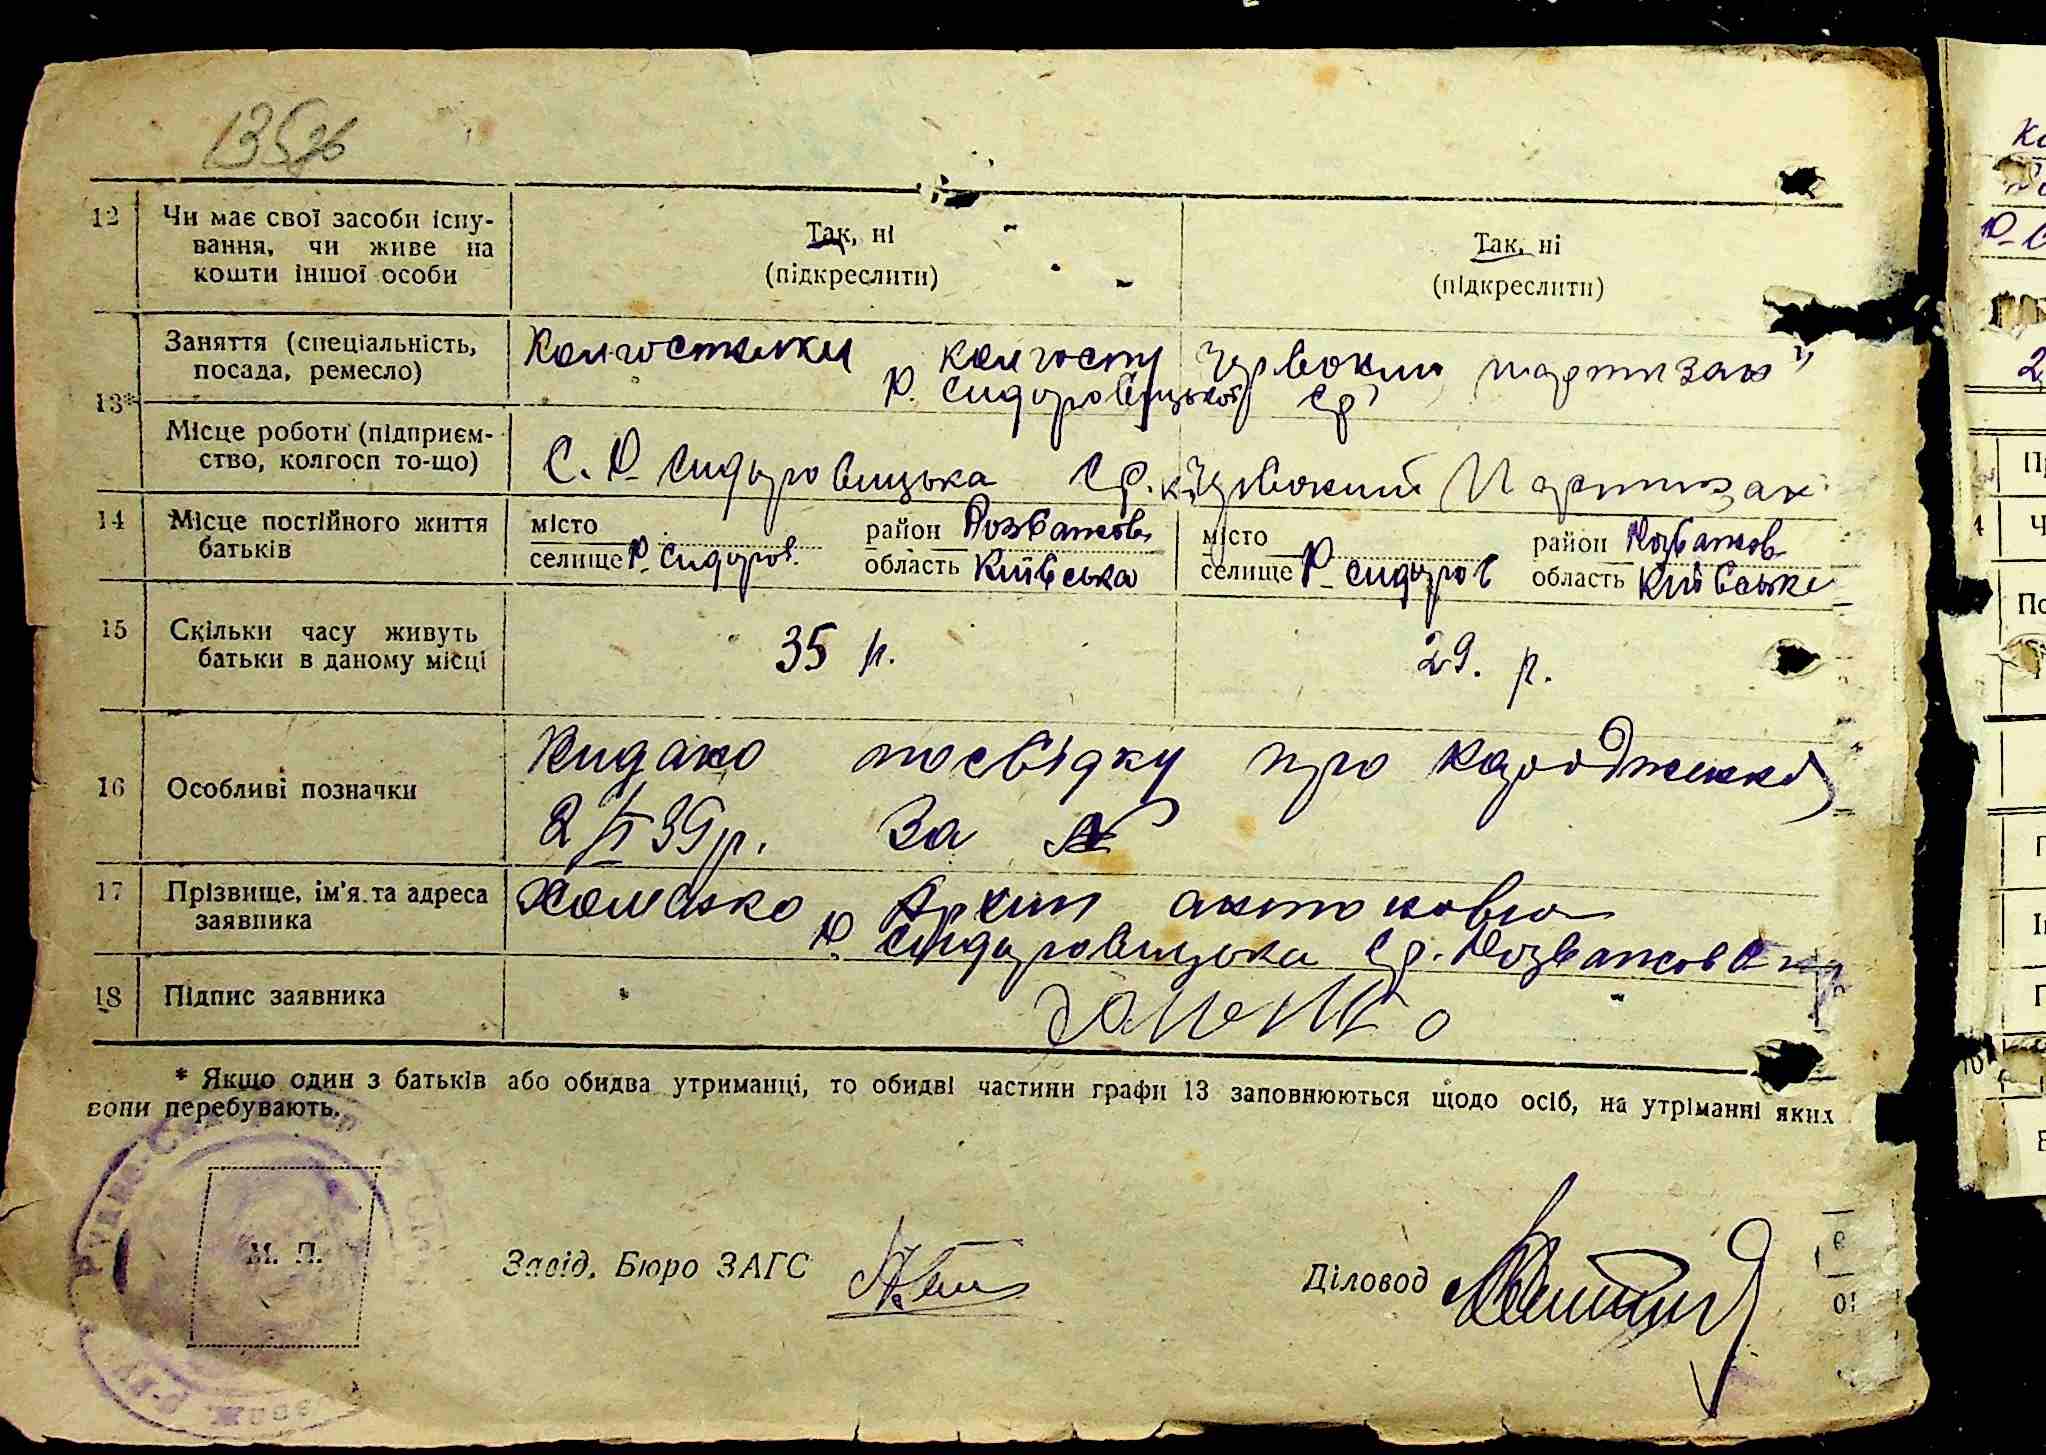 135зв
12 Чи має свої засоби існу-
вання, чи живе на
кошти іншої особи
Так, ні
(підкреслити)
Так, ні
(підкреслити)
13* Заняття (спеціальність,
посада, ремесло)
Колгоспники колгоспу Червоний партизан"
Р. Сидоровицької Ср
Місце роботи (підприєм-
ство, колгосп то-що)
С. Р. Сидоровицька Ср. к. Червоний Партизан
14 Місце постійного життя
батьків
місто
селище Р. Сидоров.
район Розважов.
область Київська
місто
селище Р. Сидоров
район Розважов.
область Київська
15 Скільки часу живуть
батьки в даному місці
35 р.
29. р.
16 Особливі позначки
Видано посвідку про народження
2/VI 39р. За №
17 Прізвище, ім'я та адреса
заявника
Хоменко Архип антонович
Р. Сидоровицька Ср. Розважов
18 Підпис заявника
Хоменко
* Якщо один з батьків або обидва утриманці, то обидві частини графи 13 заповнюються щодо осіб, на утриманні яких
вони перебувають.
М. П.
Завід. Бюро ЗАГС
Діловод